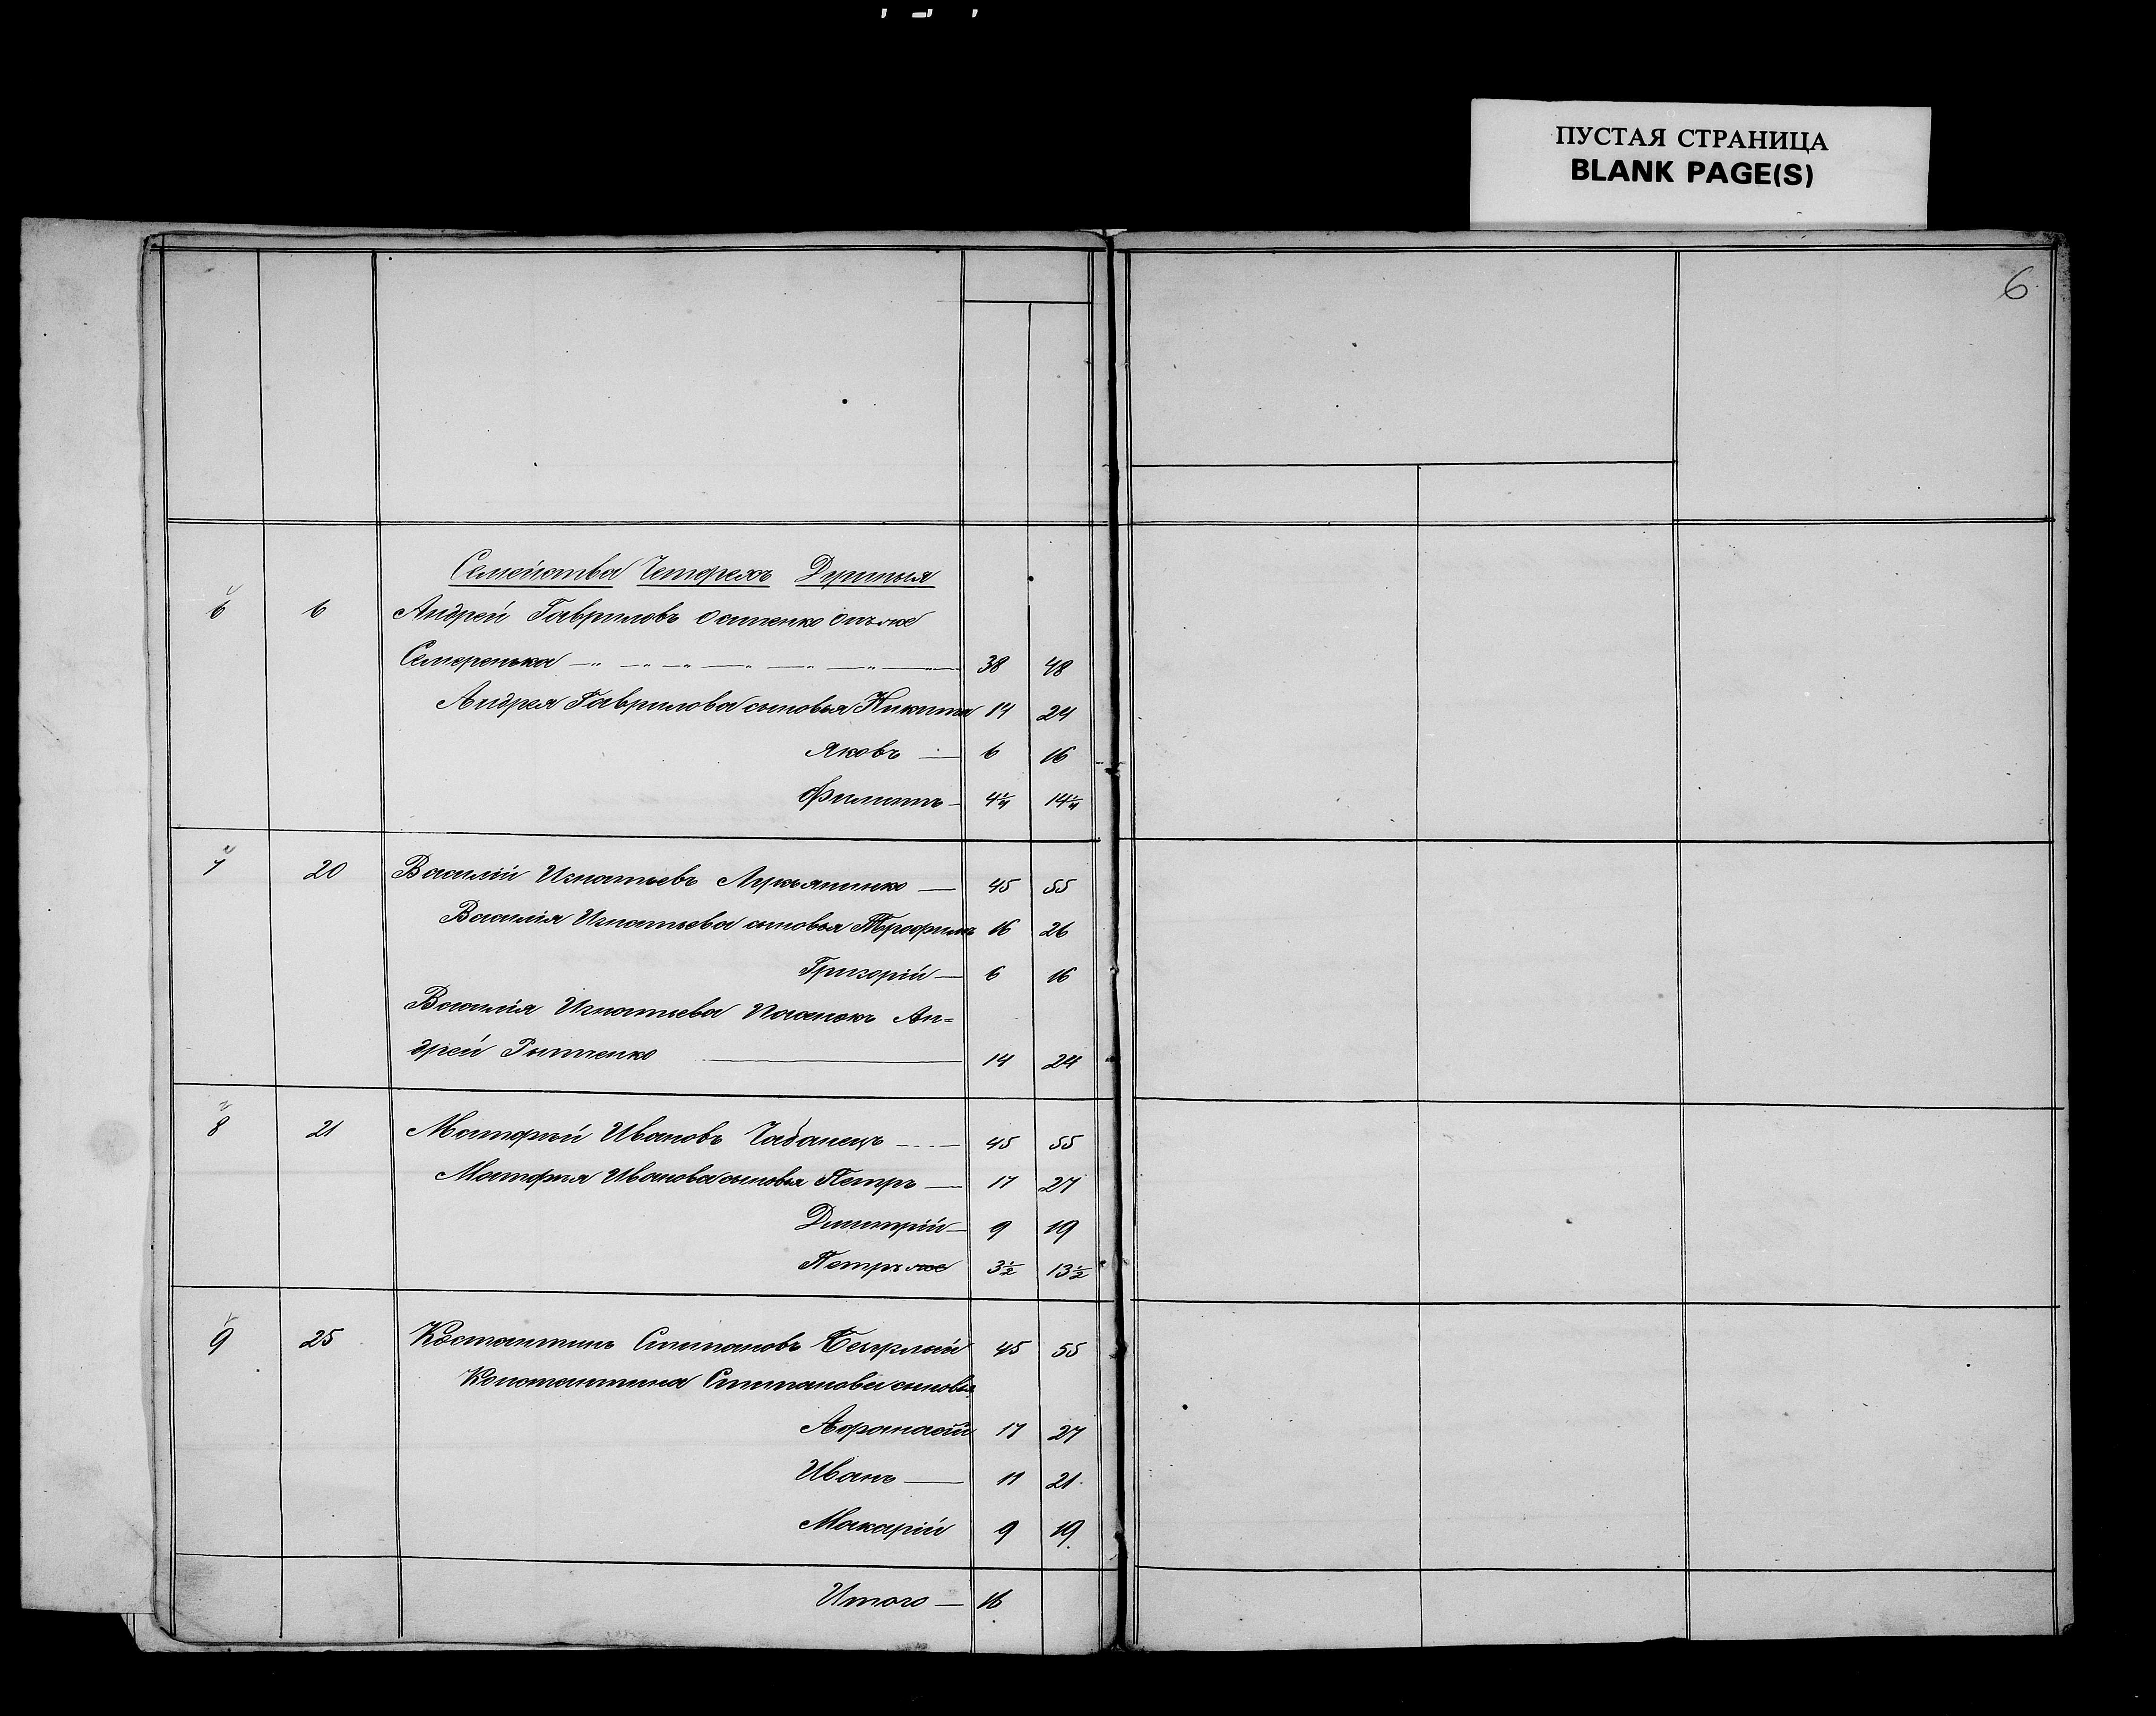 ПУСТАЯ СТРАНИЦА
BLANK PAGE(S)
6
Семейства Четырехъ Душныя
6 6 Андрей Гавриловъ Остпенко онъ же
Семеренька 38 48
Андрея Гаврилова сыновья Никита 14 24
Яковъ 6 16
Филиппъ 4¼ 14¼
7 20 Василій Игнатьевъ Лукьяненко 45 55
Василія Игнатьева сыновья Трофимъ 16 26
Григорій 6 16
Василія Игнатьева Пасенокъ Ан=
дрей 14 24
8 21 Матфей Ивановъ Чабанецъ 45 55
Матфея Иванова сыновья Петръ 17 27
Димитрій 9 19
Петръ же 3½ 13½
9 25 Костантинъ Степановъ 45 55
Константина Степанова сыновья
Афанасій 17 27
Иванъ 11 21
Макарій 9 19
Итого 16